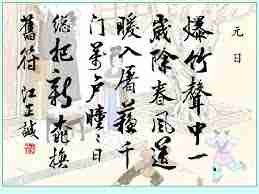 元日
爆竹聲中一
歲除春風送
暖入屠蘇千
門萬戶曈々日
總把新桃換
舊符 江正誠